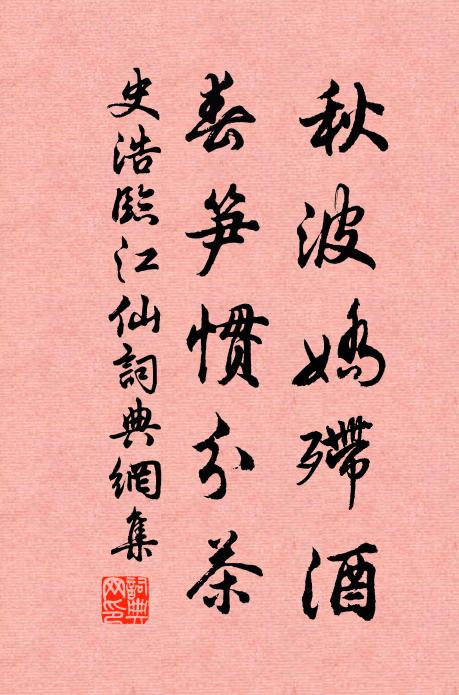 秋波嬌殢酒
春笋慣分茶
史浩臨江仙詞典網集
詞典网印